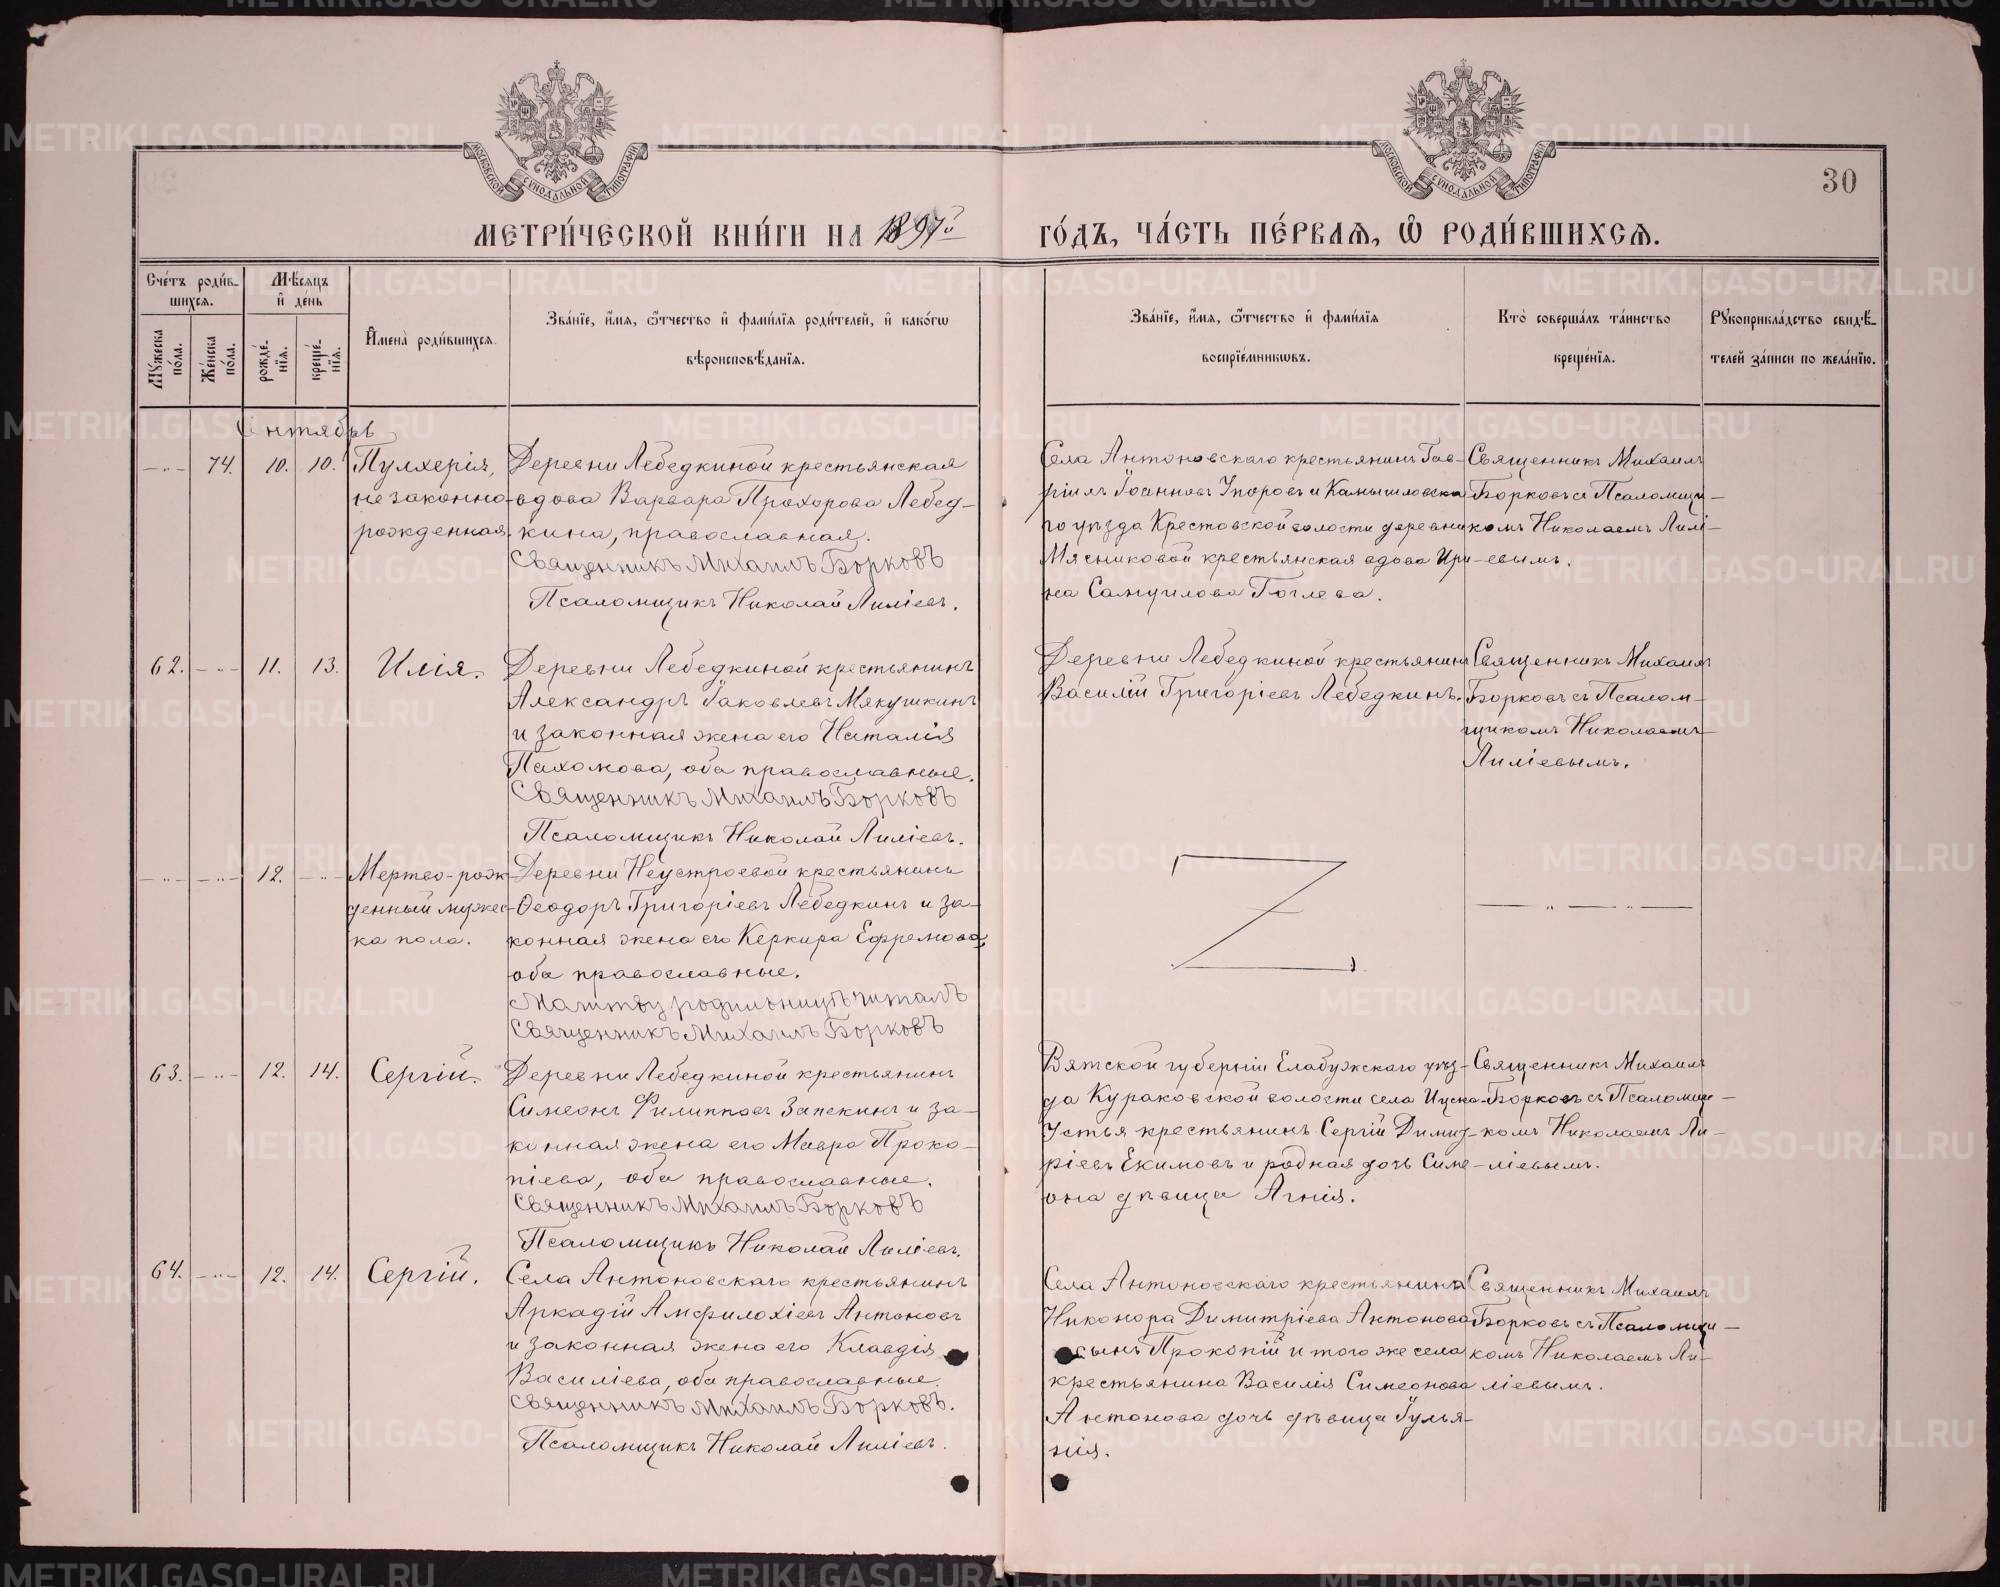 МОСКОВСКОЙ СѴНОДАЛЬНОЙ ТИПОГРАФІИ
МОСКОВСКОЙ СѴНОДАЛЬНОЙ ТИПОГРАФІИ
30
МЕТРИ́ЧЕСКОЙ КНИ́ГИ НА 1897й ГО́ДЪ, ЧА́СТЬ ПЕ́РВАѦ, Ѡ РОДИ́ВШИХСѦ.
Сче́тъ роди́вшихсѧ.
Мꙋ́жеска по́ла.
Же́нска по́ла.
Мѣ́сѧцъ и҆ де́нь
рожде́нїѧ.
креще́нїѧ.
И҆мена̀ роди́вшихсѧ.
Зва́нїе, и҆́мѧ, ѻ҆́тчество и҆ фами́лїѧ роди́телей, и҆ како́гѡ
вѣроисповѣ́данїѧ.
Зва́нїе, и҆́мѧ, ѻ҆́тчество и҆ фами́лїѧ
воспрїе́мникѡвъ.
Кто̀ соверша́лъ та́инство
креще́нїѧ.
Рꙋкоприкла́дство свидѣ́телей за́писи по жела́нїю.
Сентябрь
—„— 74. 10. 10. Пулхерія,
незаконно-
рожденная.
Деревни Лебедкиной крестьянская
вдова Варвара Прохорова Лебед-
кина, православная.
Священникъ Михаилъ Борковъ
Псаломщикъ Николай Лиліевъ.
Села Антоновскаго крестьянинъ Гав-
ріилъ Іоанновъ Упоровъ и Камышловска-
го уѣзда Крестовской волости деревни
Мясниковой крестьянская вдова Ири-
на Самуилова Гоглева.
Священникъ Михаилъ
Борковъ съ Псаломщи-
комъ Николаемъ Лилі-
евымъ.
62. —„— 11. 13. Илія.
Деревни Лебедкиной крестьянинъ
Александръ Іаковлевъ Мякушкинъ
и законная жена его Наталія
Пахомова, оба православные.
Священникъ Михаилъ Борковъ
Псаломщикъ Николай Лиліевъ.
Деревни Лебедкиной крестьянинъ
Василій Григоріевъ Лебедкинъ.
Священникъ Михаилъ
Борковъ съ Псалом-
щикомъ Николаемъ
Лиліевымъ.
—„— —„— 12. —„— Мертво-рож-
денный мужес-
ка пола.
Деревни Неустроевой крестьянинъ
Ѳеодоръ Григоріевъ Лебедкинъ и за-
конная жена его Керкира Ефремова,
оба православные.
Молитву родильницѣ читалъ
Священникъ Михаилъ Борковъ
— „ —
63. —„— 12. 14. Сергій.
Деревни Лебедкиной крестьянинъ
Симеонъ Филипповъ Запекинъ и за-
конная жена его Мавра Проко-
піева, оба православные.
Священникъ Михаилъ Борковъ
Псаломщикъ Николай Лиліевъ.
Вятской губерніи Елабужскаго уѣз-
да Кураковской волости села Ицка-
Устья крестьянинъ Сергій Димит-
ріевъ Екимовъ и родная дочь Симе-
она дѣвица Агнія.
Священникъ Михаилъ
Борковъ съ Псаломщи-
комъ Николаемъ Ли-
ліевымъ.
64. —„— 12. 14. Сергій.
Села Антоновскаго крестьянинъ
Аркадій Амфилохіевъ Антоновъ
и законная жена его Клавдія
Василіева, оба православные.
Священникъ Михаилъ Борковъ.
Псаломщикъ Николай Лиліевъ.
Села Антоновскаго крестьянина
Никонора Димитріева Антонова
сынъ Прокопій и того же села
крестьянина Василія Симеонова
Антонова дочь дѣвица Іулья-
нія.
Священникъ Михаилъ
Борковъ съ Псаломщи-
комъ Николаемъ Ли-
ліевымъ.
METRIKI.GASO-URAL.RU